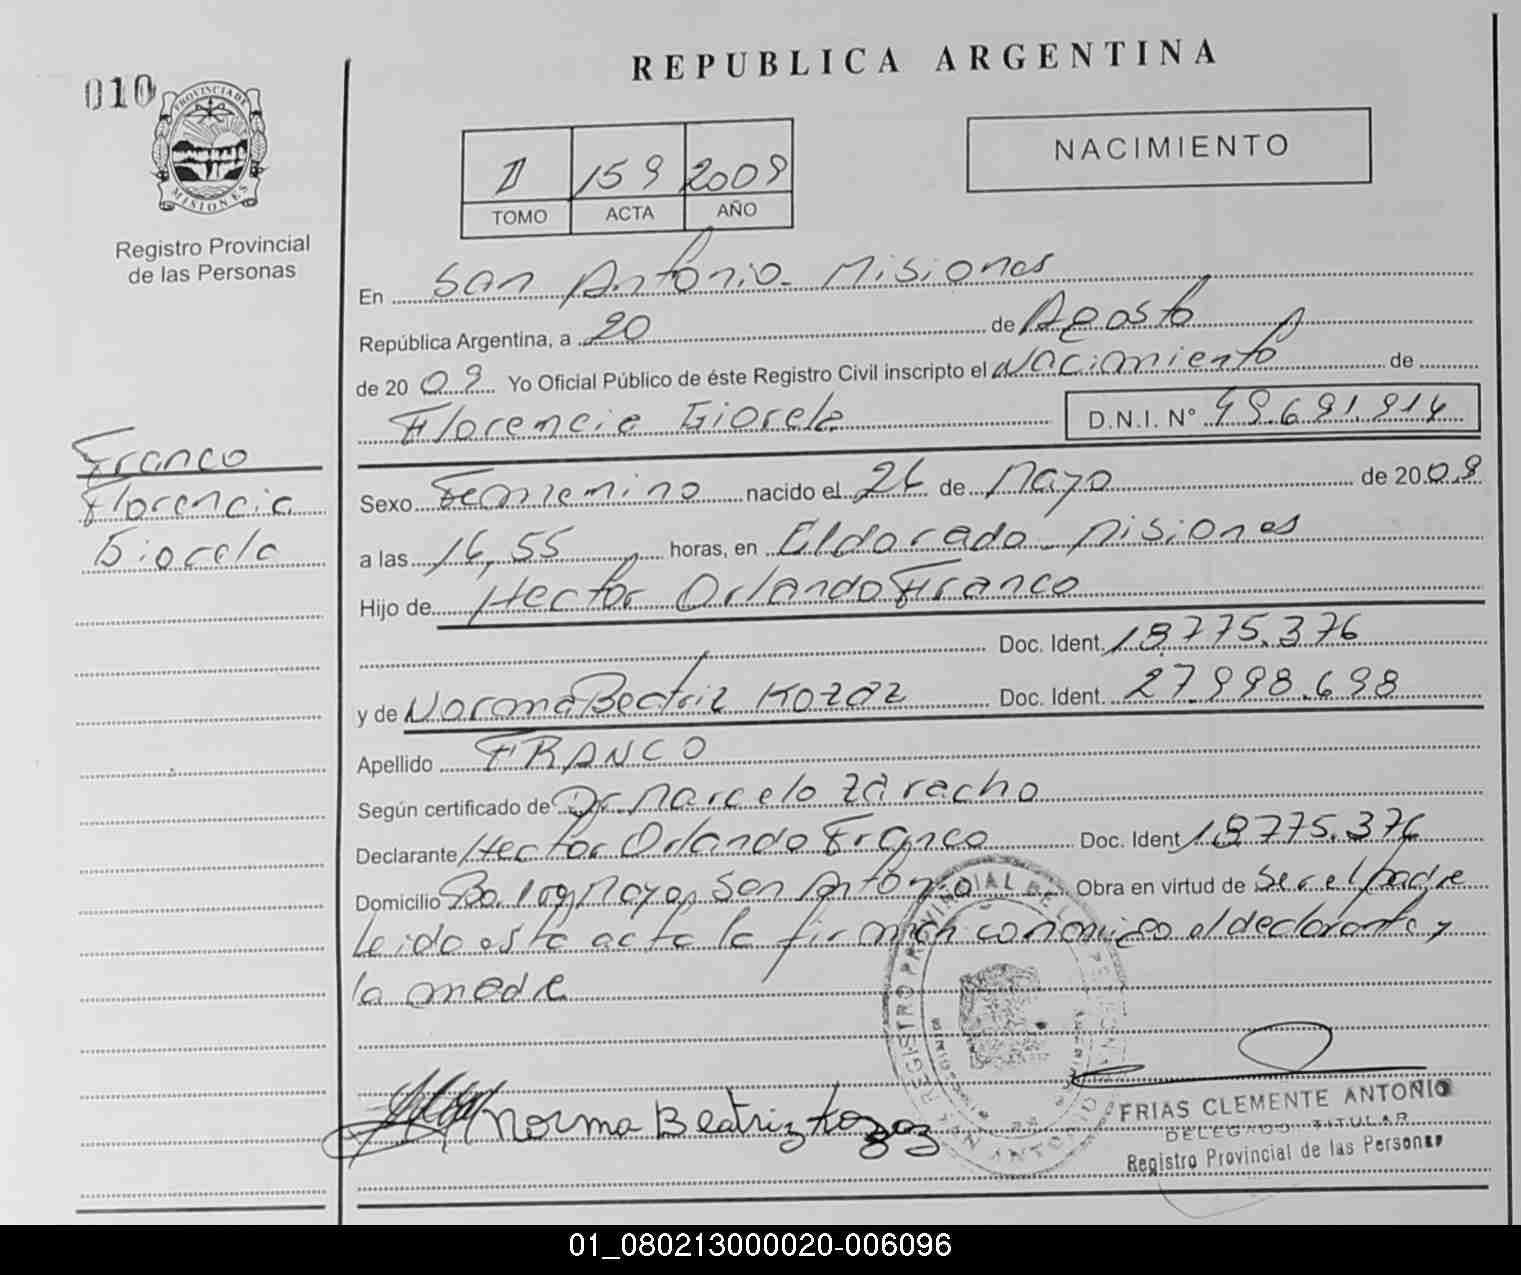 REPUBLICA ARGENTINA
010
PROVINCIA DE
MISIONES
Registro Provincial
de las Personas
NACIMIENTO
II 159 2009
TOMO ACTA AÑO
En San Antonio - Misiones
República Argentina, a 20 de Agosto
de 2009 Yo Oficial Público de éste Registro Civil inscripto el Nacimiento de
Florencia Fiorela D.N.I. Nº
Franco
Florencia
Fiorela
Sexo Femenino nacido el 26 de Mayo de 2009
a las 16,55 horas, en Eldorado - Misiones
Hijo de Hector Orlando Franco
Doc. Ident. 18.775.376
y de Norma Beatriz Kozaz Doc. Ident. 27.998.698
Apellido FRANCO
Según certificado de Dr. Marcelo Zaracho
Declarante Hector Orlando Franco Doc. Ident 18.775.376
Domicilio San Antonio Obra en virtud de Ser el padre
Leida esta acta la firman conmigo el declarante y
la madre
Norma Beatriz Kozaz
REGISTRO PROVINCIAL DE LAS PERSONAS
SAN ANTONIO
FRIAS CLEMENTE ANTONIO
DELEGADO TITULAR
Registro Provincial de las Personas
01_080213000020-006096